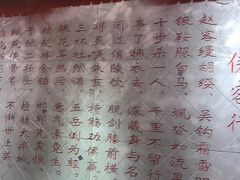 侠客行
赵客缦胡缨 吴钩霜雪明
银鞍照白马 飒沓如流星
十步杀一人 千里不留行
事了拂衣去 深藏身与名
闲过信陵饮 脱剑膝前横
将炙啖朱亥 持觞劝侯嬴
三杯吐然诺 五岳倒为轻
眼花耳热后 意气素霓生
救赵挥金槌 邯郸先震惊
千秋二壮士 烜赫大梁城
纵死侠骨香 不惭世上英